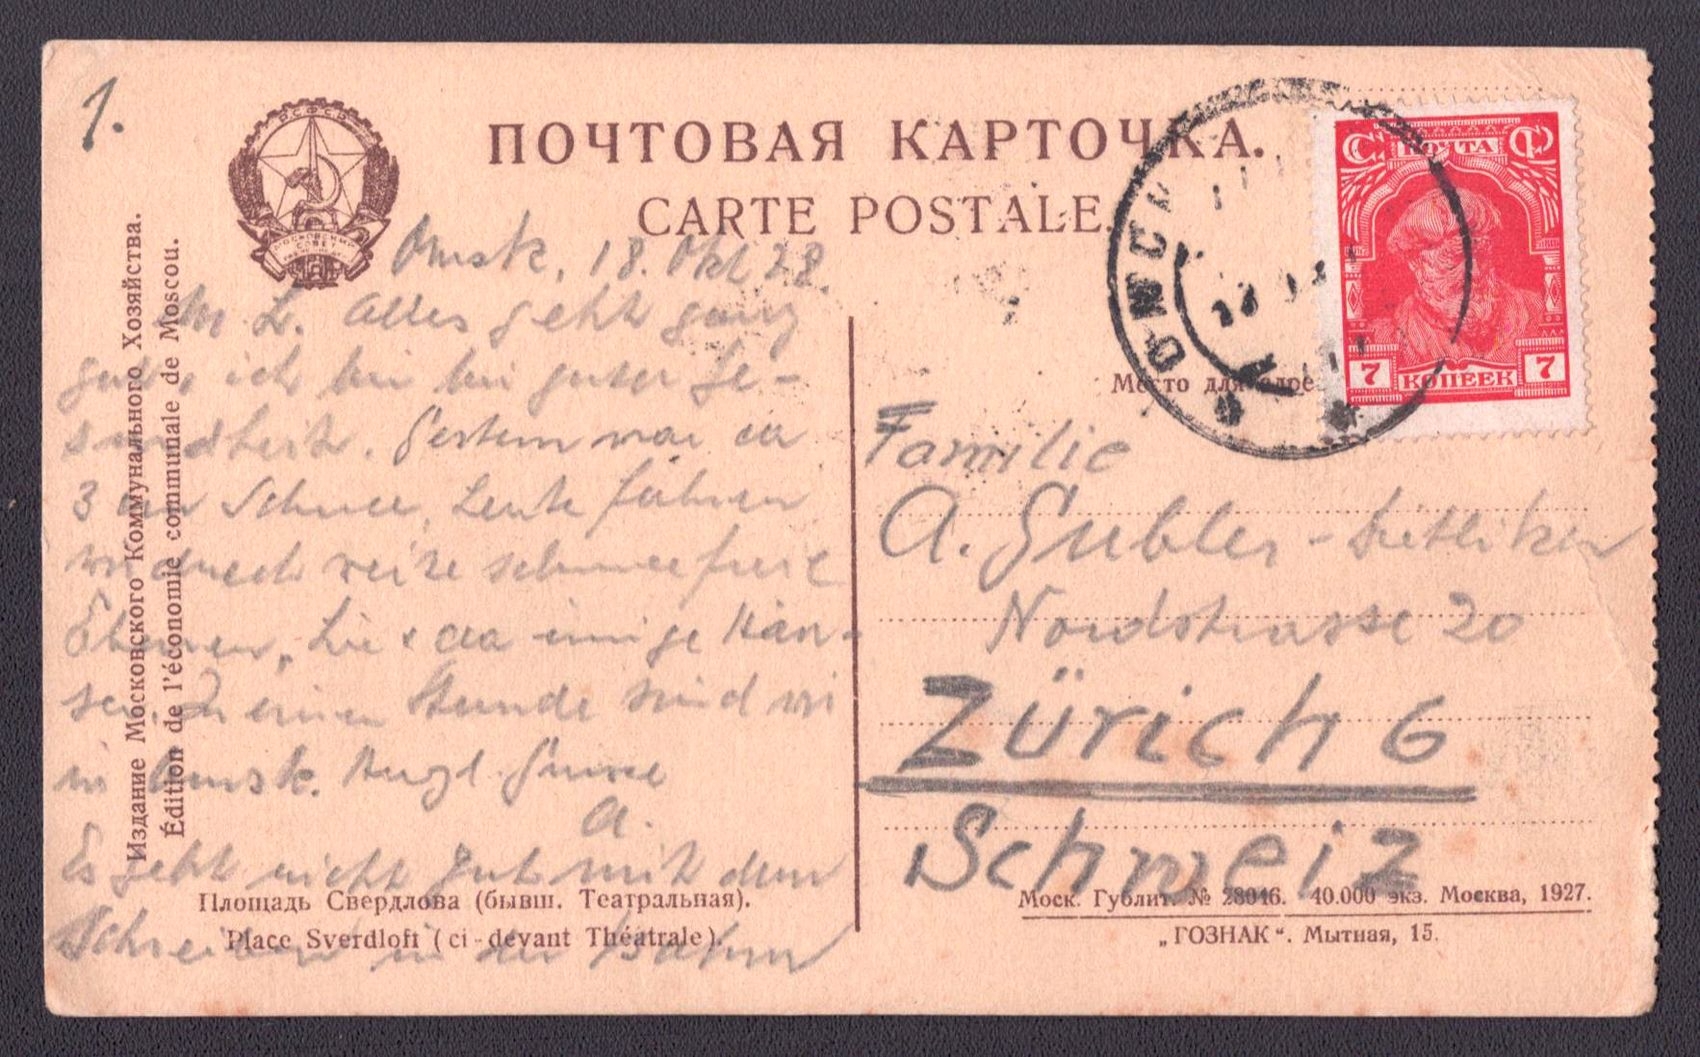 1.
РСФСР
МОСКОВСКИЙ
СОВЕТ
ПОЧТОВАЯ КАРТОЧКА.
CARTE POSTALE.
С ПОЧТА Ф
7 КОПЕЕК 7
ОМСК
Место для адре
Издание Московского Коммунального Хозяйства.
Édition de l'économie communale de Moscou.
Omsk, 18. Okt 28.
M L. Alles geht ganz
gut, ich bin bei guter Ge-
sundheit. Gestern war ca
3 cm Schnee, heute fahren
w durch weite schneefreie
Ebenen, hie & da einige Häu-
ser. In einer Stunde sind wi
in Omsk. Hrzl. Grüsse
A.
Es geht nicht gut mit dem
Schreiben in der Bahn
Familie
A. Gubler-Lütliker
Nordstrasse 20
Zürich 6
Schweiz
Площадь Свердлова (бывш. Театральная).
Place Sverdloft (ci-devant Théatrale).
Моск. Гублит. № 28046. 40.000 экз. Москва, 1927.
„ГОЗНАК“. Мытная, 15.